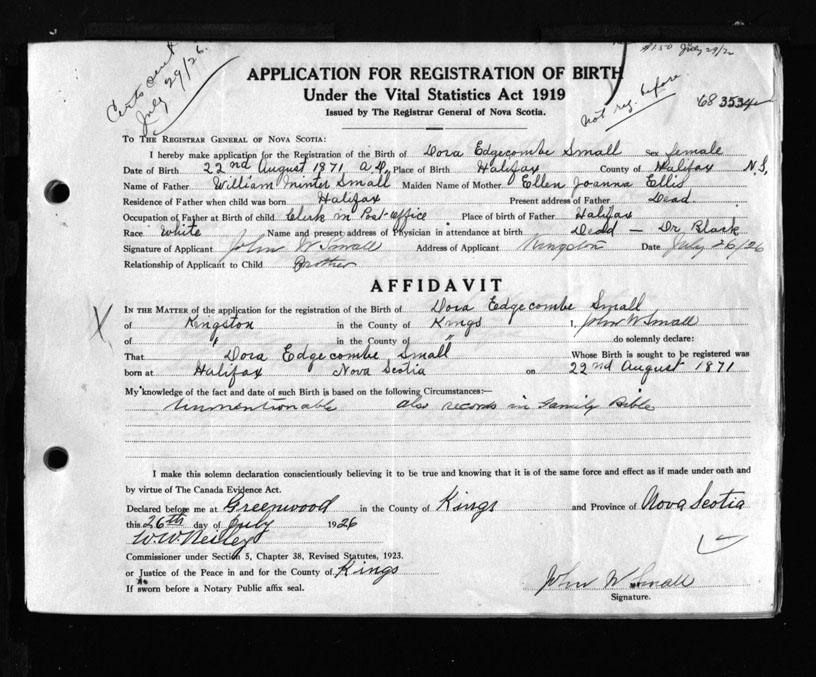 Certs out
July 29/26.
$1.50 July 29/2
not reg. before
68 3534
APPLICATION FOR REGISTRATION OF BIRTH
Under the Vital Statistics Act 1919
Issued by The Registrar General of Nova Scotia.
TO THE REGISTRAR GENERAL OF NOVA SCOTIA:
I hereby make application for the Registration of the Birth of Dora Edgecombe Small Sex female
Date of Birth 22nd August 1871 A.D. Place of Birth Halifax County of Halifax N.S,
Name of Father William Minter Small Maiden Name of Mother Ellen Joanna Ellis
Residence of Father when child was born Halifax Present address of Father Dead
Occupation of Father at Birth of child Clerk in Post-Office Place of birth of Father Halifax
Race White Name and present address of Physician in attendance at birth Dead — Dr. Black
Signature of Applicant John W Small Address of Applicant Kingston Date July 26/26
Relationship of Applicant to Child Brother
AFFIDAVIT
IN THE MATTER of the application for the registration of the Birth of Dora Edgecombe Small
of Kingston in the County of Kings I, John W Small
of " in the County of " do solemnly declare:
That Dora Edgecombe Small Whose Birth is sought to be registered was
born at Halifax Nova Scotia on 22nd August 1871
My knowledge of the fact and date of such Birth is based on the following Circumstances:—
Unmentionable also records in Family Bible
I make this solemn declaration conscientiously believing it to be true and knowing that it is of the same force and effect as if made under oath and
by virtue of The Canada Evidence Act.
Declared before me at Greenwood in the County of Kings and Province of Nova Scotia
this 26th day of July 1926
W.W. Neiley
Commissioner under Section 5, Chapter 38, Revised Statutes, 1923.
or Justice of the Peace in and for the County of Kings
If sworn before a Notary Public affix seal.
John W Small
Signature.